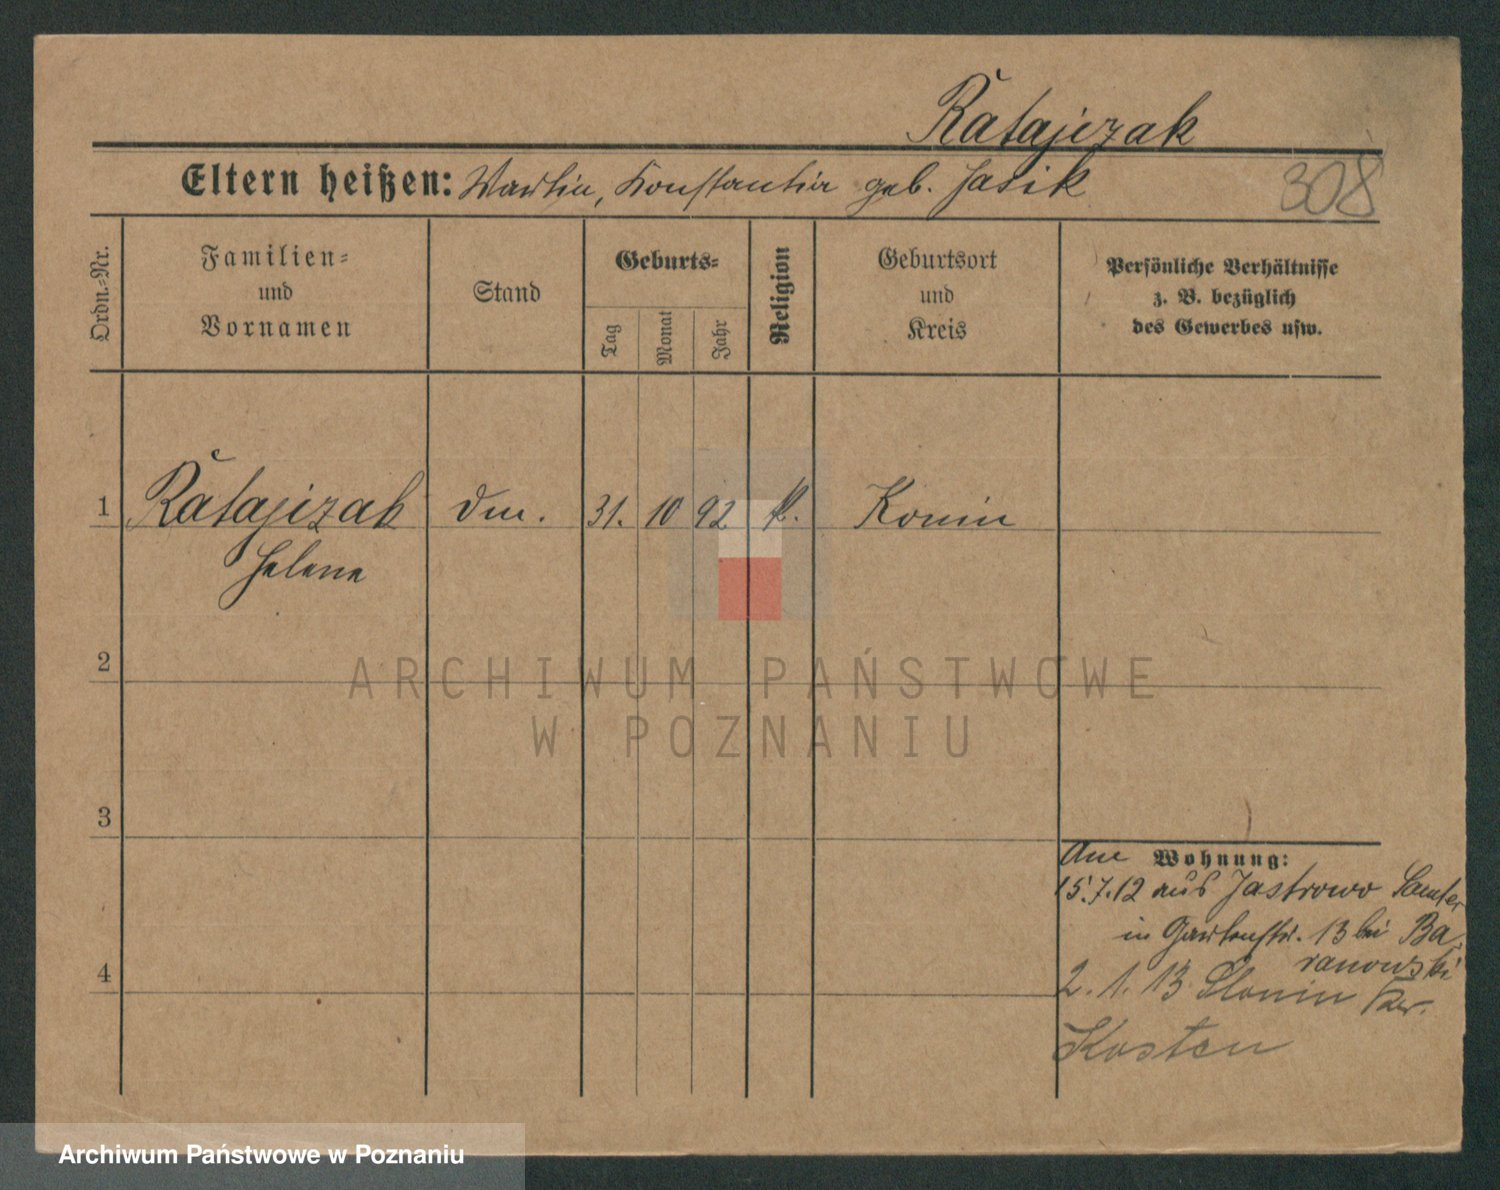 Ratajczak
Eltern heißen: Martin, Konstantia geb. Jasik
308
Ordn.-Nr.
Familien-
und
Vornamen
Stand
Geburts-
Tag
Monat
Jahr
Religion
Geburtsort
und
Kreis
Persönliche Verhältnisse
z. B. bezüglich
des Gewerbes usw.
1 Ratajczak 31. 10 92 k. Konin
Helene
2
ARCHIWUM PAŃSTWOWE
W POZNANIU
3
Wohnung:
15.7.12 aus Jastrowo Samter
in Gartenstr. 13 bei Ba-
ranowski
4
2. 1. 13 Slonin Kr.
Kosten
Archiwum Państwowe w Poznaniu